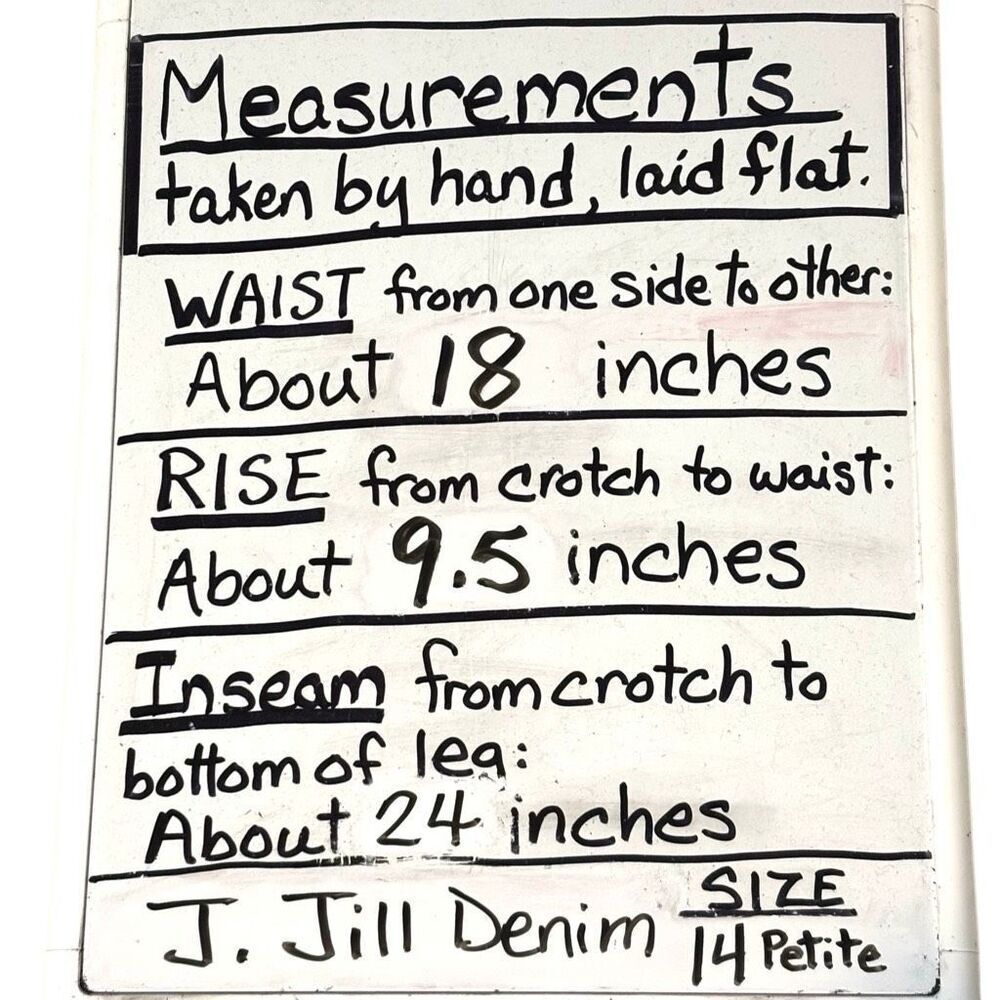 Measurements
taken by hand, laid flat.
WAIST from one side to other:
About 18 inches
RISE from crotch to waist:
About 9.5 inches
Inseam from crotch to
bottom of leg:
About 24 inches
J. Jill Denim SIZE
14 Petite